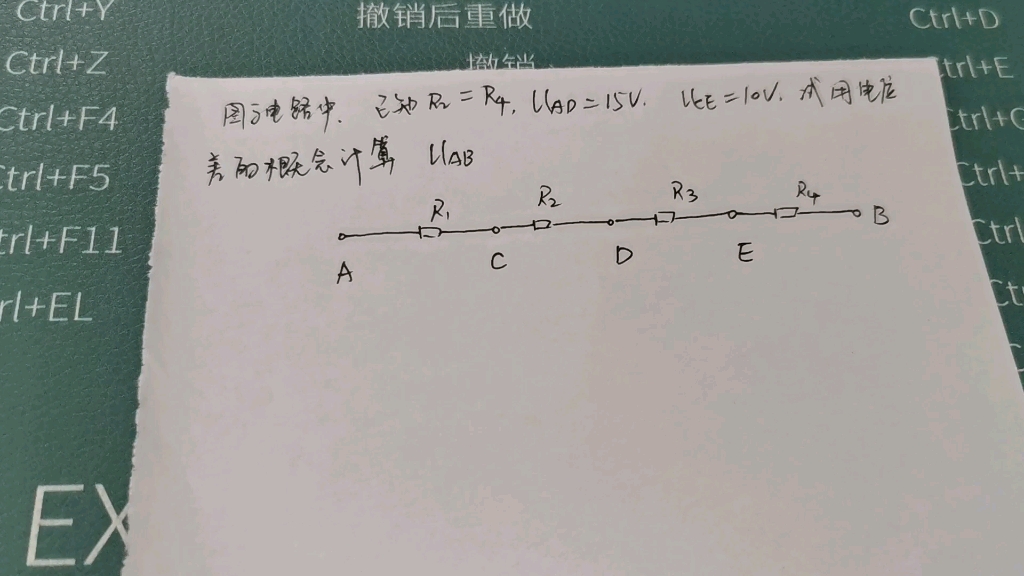 Ctrl+Y 撤销后重做 Ctrl+D
Ctrl+Z 撤销 trl+E
Ctrl+F4
Ctrl+F5
trl+F11
rl+EL
EX
图示电路中. 已知 R₂=R₄, UAD=15V. UCE=10V. 试用电位
差的概念计算 UAB
R₁ R₂ R₃ R₄
A C D E B